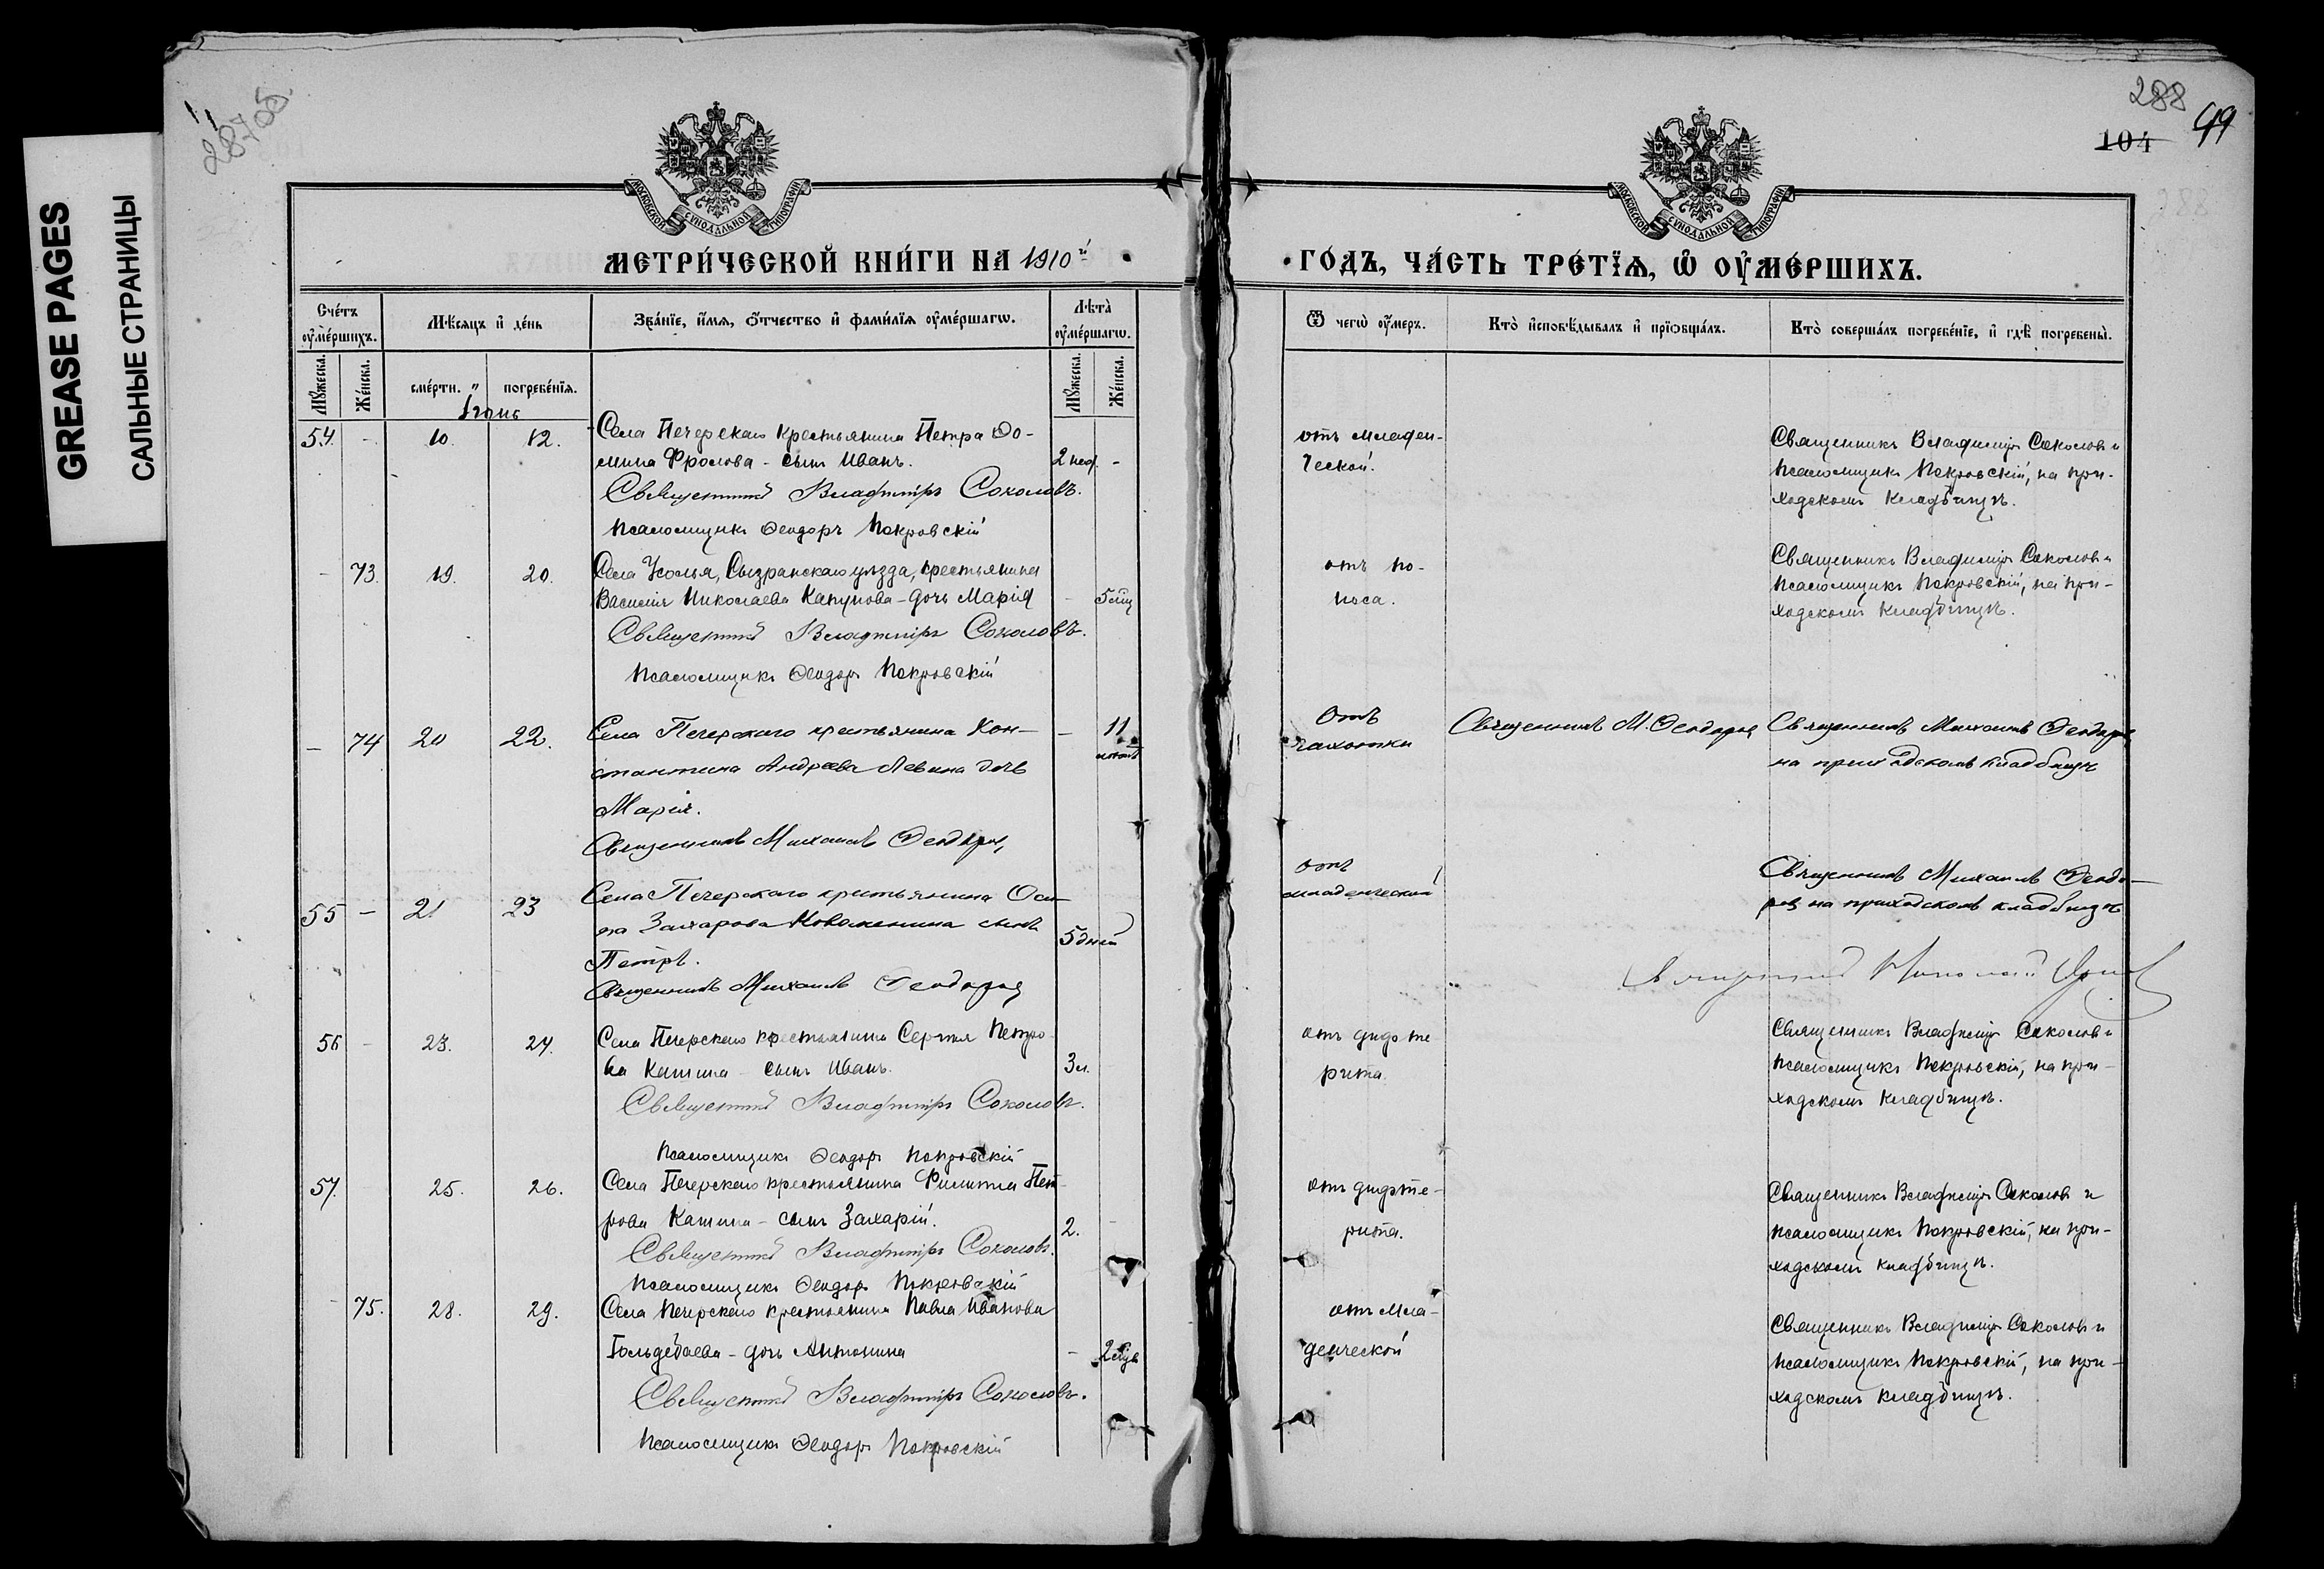 GREASE PAGES
САЛЬНЫЕ СТРАНИЦЫ
287об.
288
104 99
МОСКОВСКОЙ СУНОДАЛЬНОЙ ТИПОГРАФІИ
МОСКОВСКОЙ СУНОДАЛЬНОЙ ТИПОГРАФІИ
МЕТРИ́ЧЕСКОЙ КНИ́ГИ НА 1910й
ГО́ДЪ, ЧА́СТЬ ТРЕ́ТІѦ, Ѡ҆ ОУ҆МЕ́РШИХЪ.
Сче́тъ оу҆ме́ршихъ.
Мꙋжеска.
Же́нска.
Мѣ́сѧцъ и҆ де́нь
сме́рти.
погребе́нїѧ.
Зва́нїе, и҆́мѧ, ѻ҆́тчество и҆ фами́лїѧ оу҆ме́ршагѡ.
Лѣ́та оу҆ме́ршагѡ.
Мꙋжеска.
Же́нска.
Ѿ чегѡ̀ оу҆́меръ.
Кто̀ и҆сповѣ́дывалъ и҆ прїѻбща́лъ.
Кто̀ соверша́лъ погребе́нїе, и҆ гдѣ̀ погребены̀.
Іюнь
54. - 10. 12. Села Печерскаго крестьянина Петра Ѳо-
мина Фролова - сынъ Иванъ. 2 нед. -
Священникъ Владиміръ Соколовъ.
Псаломщикъ Ѳеодоръ Покровскій
отъ младен-
ческой.
Священникъ Владиміръ Соколовъ и
псаломщикъ Покровскій, на при-
ходскомъ кладбищѣ.
- 73. 19. 20. Села Усолья, Сызранскаго уѣзда, крестьянина
Василія Николаева Капунова - дочь Марія - 5 мѣц
Священникъ Владиміръ Соколовъ.
Псаломщикъ Ѳеодоръ Покровскій
отъ по-
носа.
Священникъ Владиміръ Соколовъ и
псаломщикъ Покровскій, на при-
ходскомъ кладбищѣ.
- 74 20 22. Села Печерскаго крестьянина Кон-
стантина Андреева Левина дочь - 11
Марія.
Священникъ Михаилъ Ѳеодоровъ
Отъ
чахотки
Священникъ М. Ѳеодоровъ
Священникъ Михаилъ Ѳеодоровъ
на приходскомъ кладбищѣ
55 - 21 23 Села Печерскаго крестьянина Оси-
па Захарова Новоженина сынъ 5 дней
Петръ.
Священникъ Михаилъ Ѳеодоровъ
отъ
младенческой
Священникъ Михаилъ Ѳеодо-
ровъ на приходскомъ кладбищѣ
Николай
56 - 23. 24. Села Печерскаго крестьянина Сергѣя Петро-
ва Кашина - сынъ Иванъ. 3 м.
Священникъ Владиміръ Соколовъ.
Псаломщикъ Ѳеодоръ Покровскій
отъ дифте
рита.
Священникъ Владиміръ Соколовъ и
псаломщикъ Покровскій, на при-
ходскомъ кладбищѣ.
57. 25. 26. Села Печерскаго крестьянина Филиппа Пет-
рова Кашина - сынъ Захарій. 2. -
Священникъ Владиміръ Соколовъ.
Псаломщикъ Ѳеодоръ Покровскій
отъ дифте-
рита.
Священникъ Владиміръ Соколовъ и
псаломщикъ Покровскій, на при-
ходскомъ кладбищѣ.
- 75. 28. 29. Села Печерскаго крестьянина Павла Иванова
дочь Антонина -
Священникъ Владиміръ Соколовъ.
Псаломщикъ Ѳеодоръ Покровскій
отъ мла-
денческой
Священникъ Владиміръ Соколовъ и
псаломщикъ Покровскій, на при-
ходскомъ кладбищѣ.